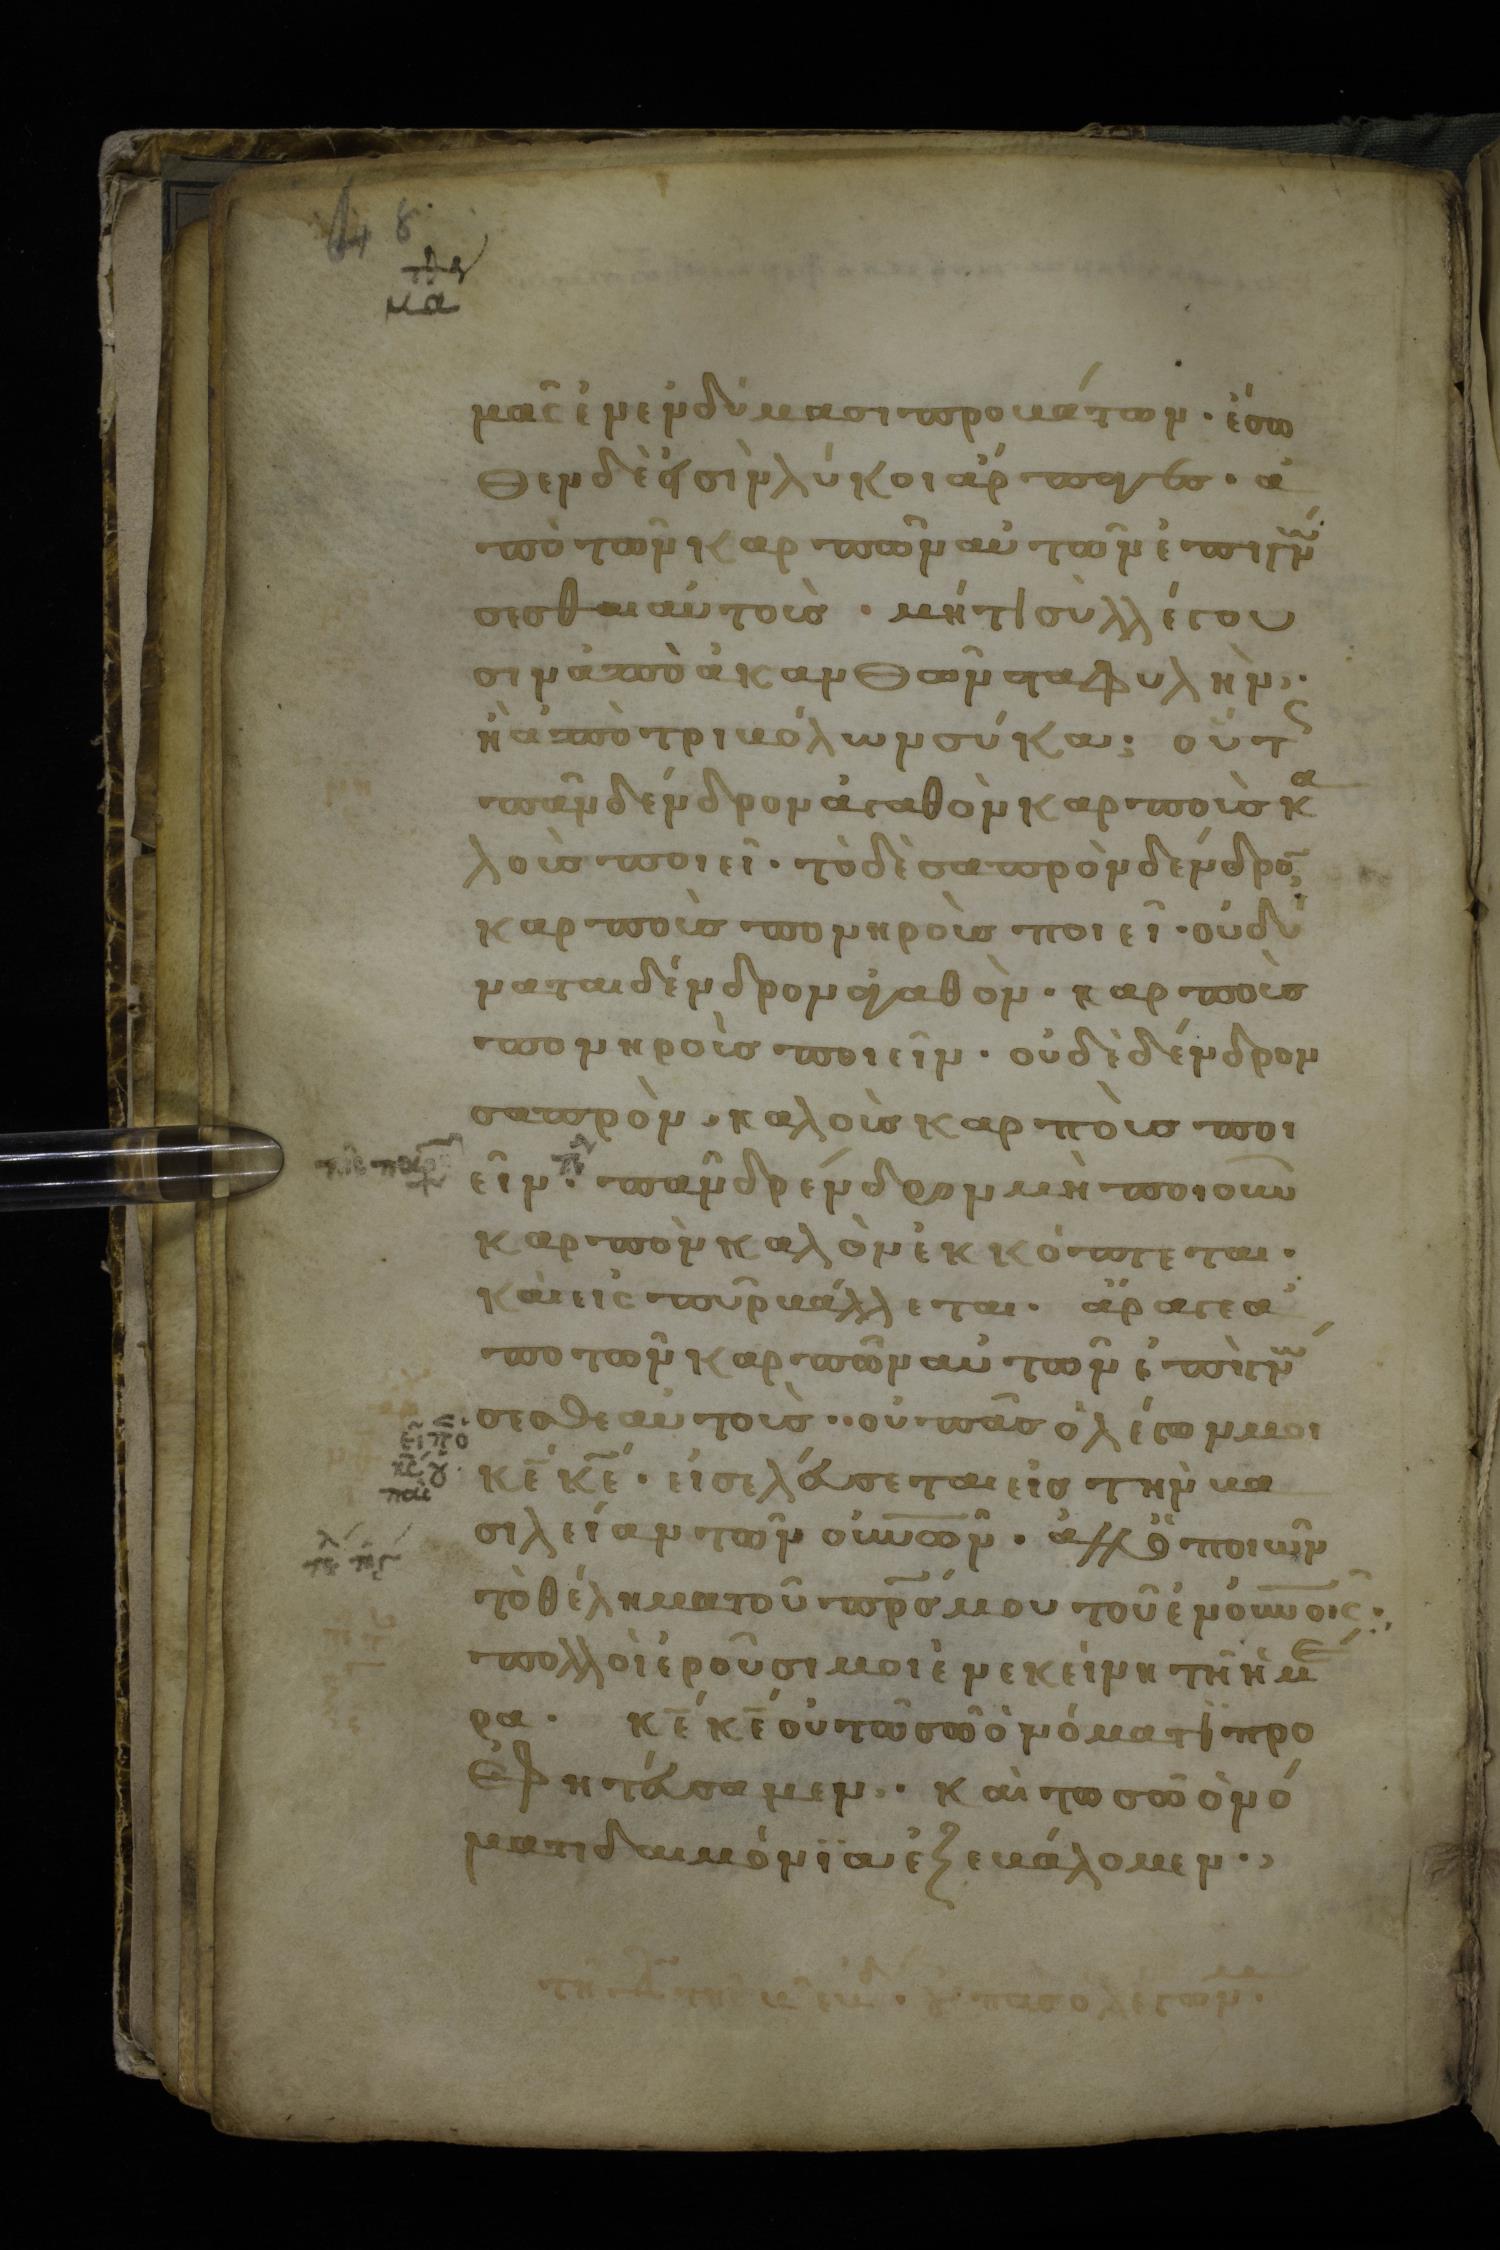 μᾶς ἐν ἐνδύμασι προβάτων · ἔσω
θεν δὲ εἰσὶν λύκοι ἅρπαγες · ἀ
πὸ τῶν καρπῶν αὐτῶν ἐπιγνώ
σεσθαι αὐτοὺς · μήτι συλλέγου
σιν ἀπὸ ἀκανθῶν σταφυλὴν ·
ἢ ἀπὸ τριβόλων σύκα; οὕτως
πᾶν δένδρον ἀγαθὸν καρποὺς κα
λοὺς ποιεῖ · τὸ δὲ σαπρὸν δένδρον
καρποὺς πονηροὺς ποιεῖ · οὐ δύ
ναται δένδρον ἀγαθὸν · καρποὺς
πονηροὺς ποιεῖν · οὐδὲ δένδρον
σαπρὸν, καλοὺς καρποὺς ποι
εῖν · πᾶν δρένδρον μὴ ποιοῦν
καρπὸν καλὸν ἐκκόπτεται ·
καὶ εἰς πῦρ βάλλεται · ἄρα γε ἀ
πο τῶν καρπῶν αὐτῶν ἐπιγνώ
σεσθε αὐτοὺς · οὐ πᾶς ὁ λέγων μοι
κ̅ε̅ κ̅ε̅ · εἰσελεύσεται εἰς τὴν βα
σιλείαν τῶν ο̅υ̅ν̅ω̅ν̅ · ἀλλ' ὁ ποιῶν
τὸ θέλημα τοῦ π̅ρ̅ς̅ μου τοῦ ἐν ο̅υ̅ν̅οις ·
πολλοὶ ἐροῦσι μοι ἐν ἐκείνη τῆ ἡμέ
ρα · κ̅ε̅ κ̅ε̅ οὐ τῶ σῶ ὀνόματι προ
εφητεύσαμεν · καὶ τω σῶ ὀνό
ματι δαιμόνϊα ἐξεβάλομεν ·